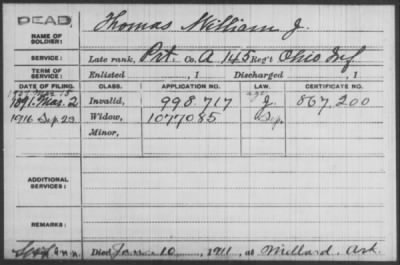 DEAD
Thomas William J.
NAME OF
SOLDIER:
SERVICE: Late rank, Prt. Co. A 145 Reg't Ohio Inf.
TERM OF
SERVICE: Enlisted , 1 Discharged , 1
DATE OF FILING. CLASS. APPLICATION NO. LAW. CERTIFICATE NO.
1891. Mar. 2 Invalid, 998.717 J. 867.200
1916 Sep. 23 Widow, 1077085 Sep.
Minor,
ADDITIONAL
SERVICES:
REMARKS:
Died Jan 10, 1911, at Millard, Ark.